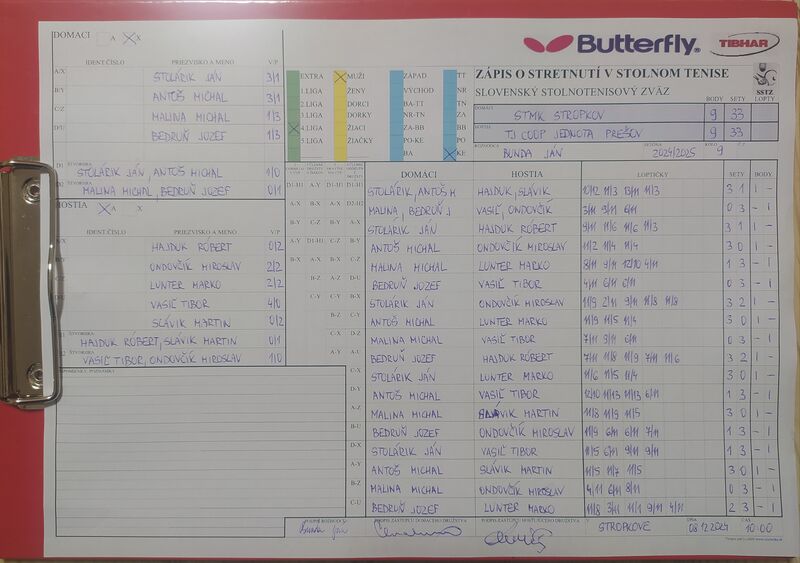 DOMACI A X
Butterfly
TIBHAR
IDENT.ČÍSLO PRIEZVISKO A MENO V/P
A/X STOLÁRIK JÁN 3/1
B/Y ANTOŠ MICHAL 3/1
C/Z MALINA MICHAL 1/3
D/U BEDRUŇ JOZEF 1/3
D1 ŠTVORHRA
STOLÁRIK JÁN, ANTOŠ MICHAL 1/0
D2 ŠTVORHRA
MALINA MICHAL, BEDRUŇ JOZEF 0/1
HOSTIA A X
IDENT.ČÍSLO PRIEZVISKO A MENO V/P
HAJDUK RÓBERT 0/2
ONDOVČÍK MIROSLAV 2/2
LUNTER MARKO 2/2
VASIĽ TIBOR 4/0
SLÁVIK MARTIN 0/2
ŠTVORHRA
HAJDUK RÓBERT, SLÁVIK MARTIN 0/1
ŠTVORHRA
VASIĽ TIBOR, ONDOVČÍK MIROSLAV 1/0
EXTRA MUŽI ZÁPAD TT
1.LIGA ŽENY VÝCHOD NR
2.LIGA DORCI BA-TT TN
3.LIGA DORKY NR-TN ZA
4.LIGA ŽIACI ZA-BB BB
5.LIGA ŽIAČKY PO-KE PO
BA KE
ZÁPIS O STRETNUTÍ V STOLNOM TENISE
SLOVENSKÝ STOLNOTENISOVÝ ZVÄZ
SSTZ
BODY SETY LOPTY
DOMÁCI STMK STROPKOV 9 33
HOSTIA TJ COOP JEDNOTA PREŠOV 9 33
ROZHODCA BUNDA JÁN SEZÓNA 2024/2025 KOLO 9
DOMÁCI HOSTIA LOPTIČKY SETY BODY
STOLÁRIK, ANTOŠ M HAJDUK, SLÁVIK 10/12 11/3 13/11 11/3 3 1 1 -
MALINA, BEDRUŇ J VASIĽ, ONDOVČÍK 3/11 9/11 6/11 0 3 - 1
STOLÁRIK JÁN HAJDUK RÓBERT 9/11 11/6 11/6 11/3 3 1 1 -
ANTOŠ MICHAL ONDOVČÍK MIROSLAV 11/2 11/4 11/4 3 0 1 -
MALINA MICHAL LUNTER MARKO 8/11 9/11 12/10 4/11 1 3 - 1
BEDRUŇ JOZEF VASIĽ TIBOR 4/11 6/11 6/11 0 3 - 1
STOLÁRIK JÁN ONDOVČÍK MIROSLAV 11/9 2/11 9/11 11/8 11/8 3 2 1 -
ANTOŠ MICHAL LUNTER MARKO 11/9 11/5 11/4 3 0 1 -
MALINA MICHAL VASIĽ TIBOR 7/11 9/11 6/11 0 3 - 1
BEDRUŇ JOZEF HAJDUK RÓBERT 7/11 11/8 11/9 7/11 11/6 3 2 1 -
STOLÁRIK JÁN LUNTER MARKO 11/6 11/5 11/4 3 0 1 -
ANTOŠ MICHAL VASIĽ TIBOR 12/10 11/13 11/13 6/11 1 3 - 1
MALINA MICHAL SLÁVIK MARTIN 11/8 11/9 11/5 3 0 1 -
BEDRUŇ JOZEF ONDOVČÍK MIROSLAV 11/9 6/11 6/11 7/11 1 3 - 1
STOLÁRIK JÁN VASIĽ TIBOR 11/5 6/11 9/11 9/11 1 3 - 1
ANTOŠ MICHAL SLÁVIK MARTIN 11/5 11/7 11/5 3 0 1 -
MALINA MICHAL ONDOVČÍK MIROSLAV 4/11 6/11 8/11 0 3 - 1
BEDRUŇ JOZEF LUNTER MARKO 11/8 3/11 11/1 9/11 4/11 2 3 - 1
PODPIS ROZHODCU Bunda Ján
PODPIS ZÁSTUPCU DOMÁCEHO DRUŽSTVA
PODPIS ZÁSTUPCU HOSŤUJÚCEHO DRUŽSTVA
V STROPKOVE DŇA 08.12.2024 ČAS 10:00